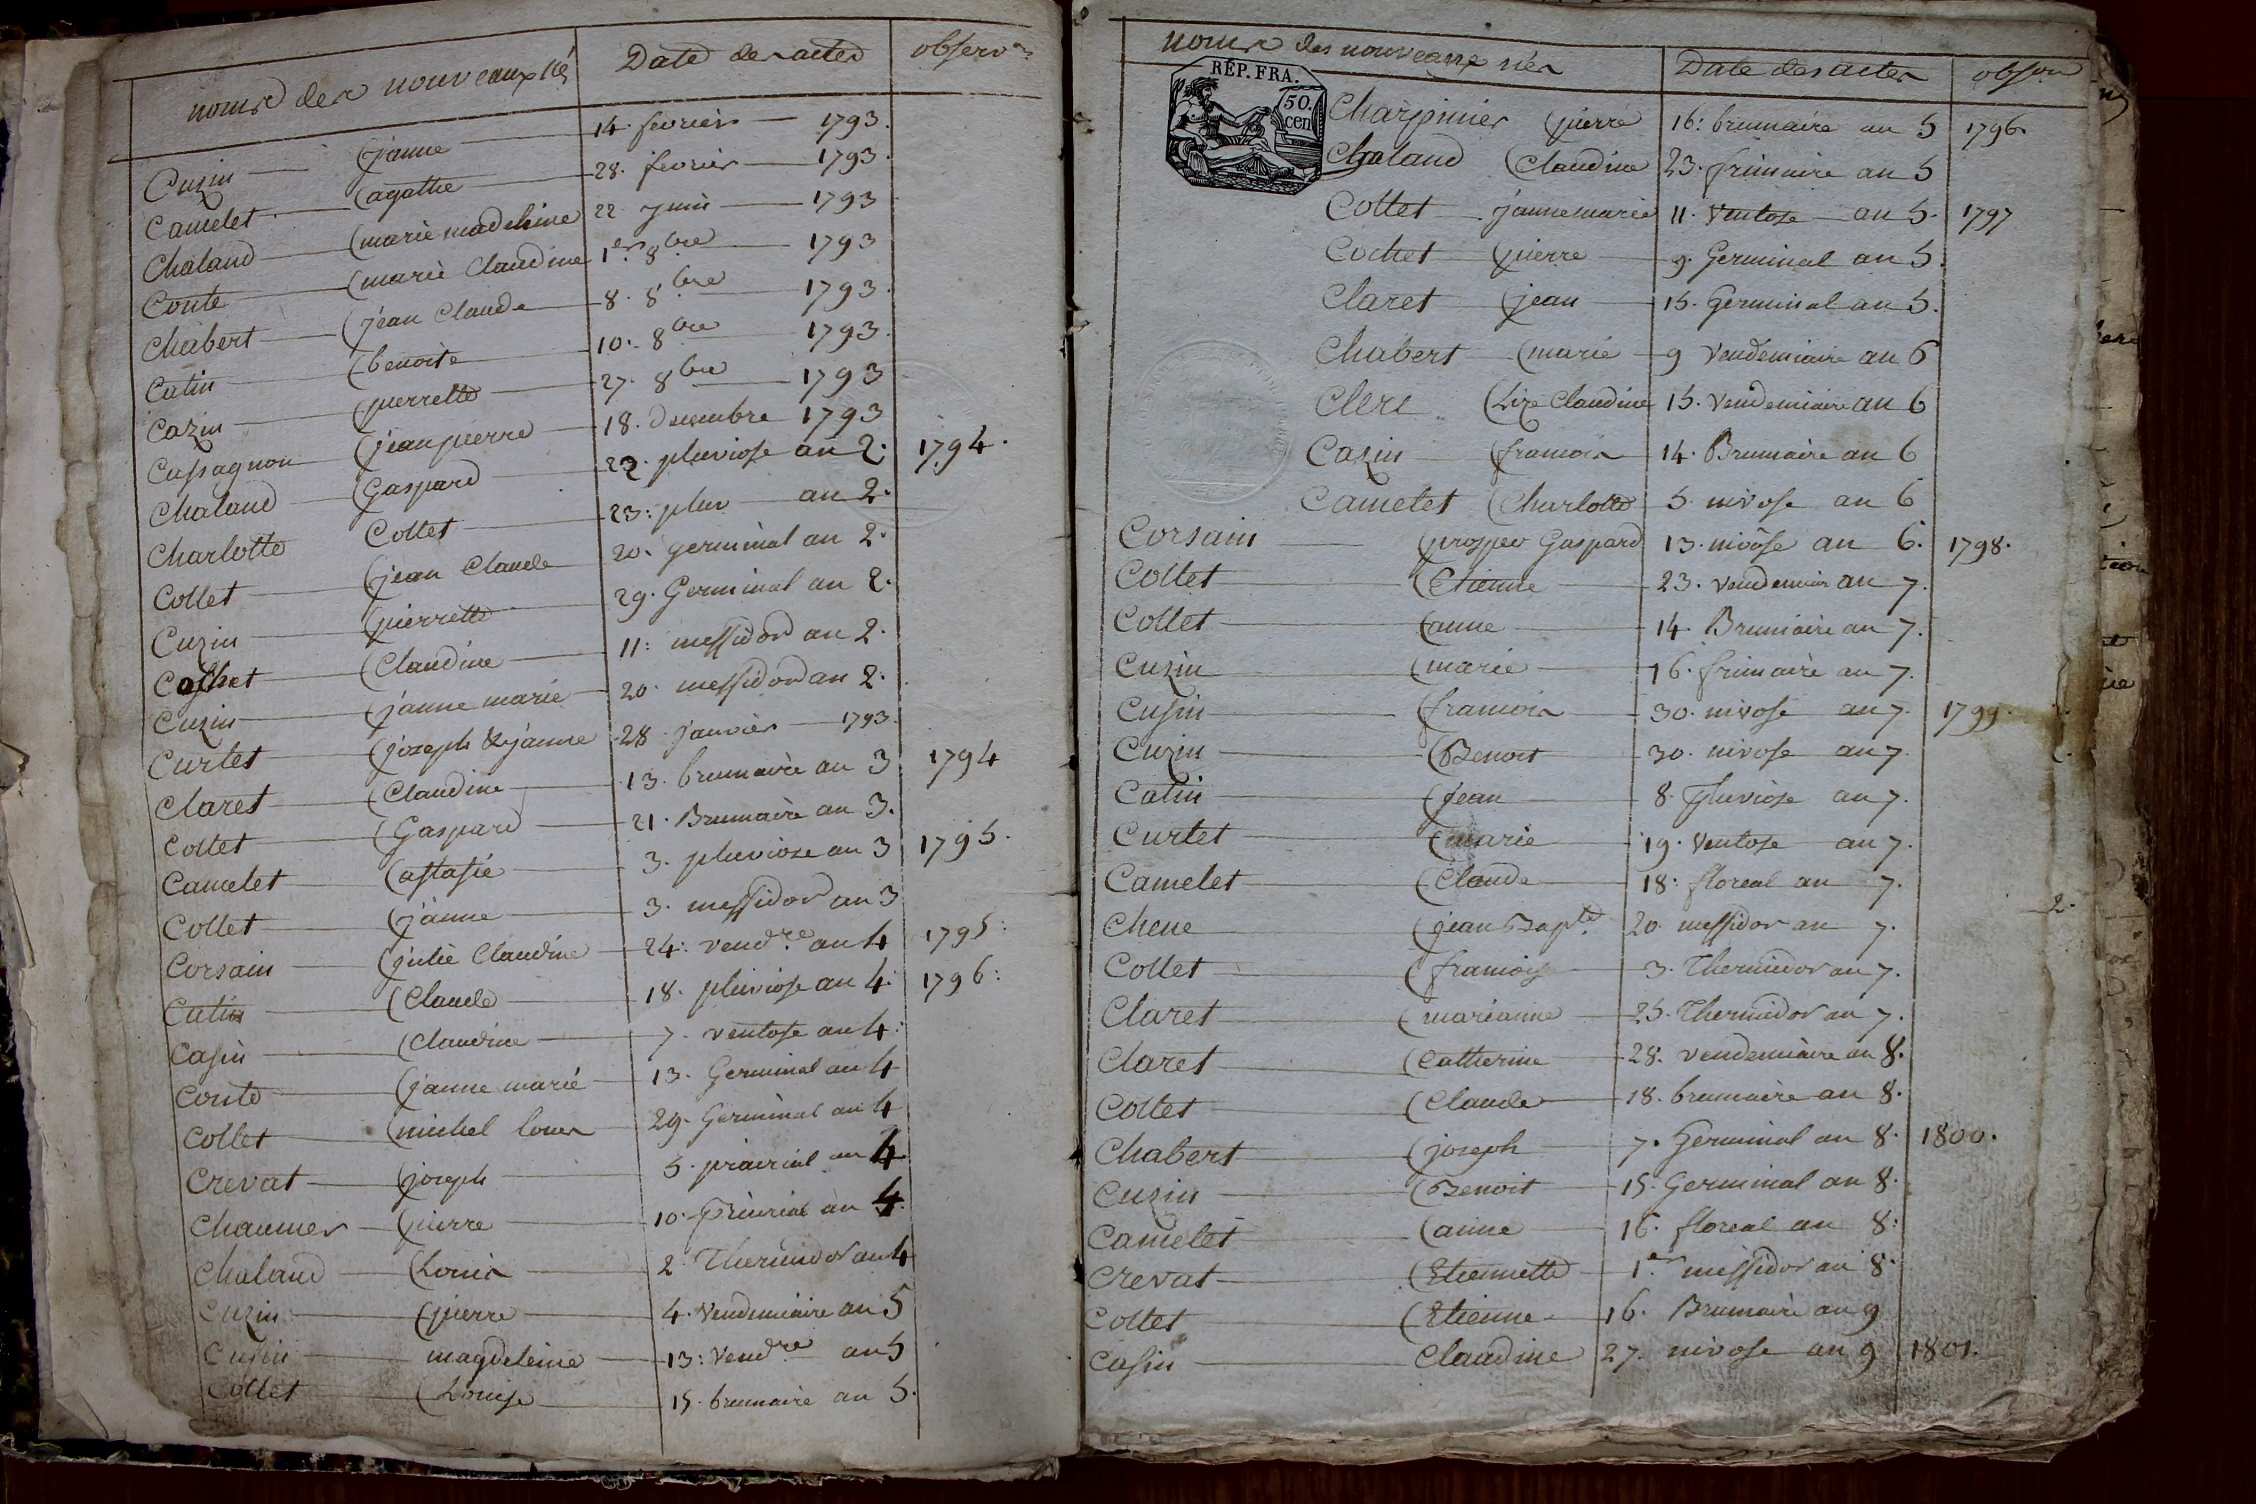 noms des nouveaux nés Date des actes observ.ons
Cuzin (janne 14. fevrier 1793.
Camelet (agathe 28. fevrier 1793.
Chaland (marie madeleine 22 juin 1793
Conte (marie Claudine 1er 8bre 1793
Chabert (jean Claude 8. 8bre 1793.
Catin (benoite 10. 8bre 1793.
Cazin (pierrette 27. 8bre 1793
Cussagnon (jean pierre 18. decembre 1793
Chaland (Gaspard 22. pluviose an 2. 1794.
Charlotte Collet 23. pluv an 2.
Collet (jean Claude 20. germinal an 2.
Cuzin (pierrette 29. Germinal an 2.
Cochet (Claudine 11: messidor an 2.
Cuzin (janne marie 20. messidor an 2.
Curtet (joseph & janne 28 janvier 1793.
Claret (Claudine 13. brumaire an 3 1794
Collet (Gaspard 21. Brumaire an 3.
Camelet (astasie 3. pluviose an 3 1795.
Collet (janne 3. messidor an 3
Corsain (julie Claudine 24. vendre an 4 1795:
Catin (Claude 18. pluviose an 4. 1796:
Casin (Claudine 7. ventose an 4.
Conte (janne marie 13. Germinal an 4
Collet (michel louis 29. Germinal an 4
Crevat (joseph 5. prairial an 4
Chaumer (pierre 10. prairial an 4.
Chaland (Louis 2. Thermidor an 4
Cuzin (pierre 4. Vendemiaire an 5
Cusin magdeleine 13: Vendre an 5
Collet (Louise 15. brumaire an 5.
noms des nouveaux nés Date des actes obser
RÉP. FRA.
50.
cen
Charpinier (pierre 16: brumaire an 5 1796.
Chaland (Claudine 23. frimaire an 5
Collet janne marie 11. Ventose an 5. 1797
Cochet (pierre 9. Germinal an 5.
Claret (jean 15. Germinal an 5.
Chabert (marie 9 Vendemiaire an 6
Clerc (Lize Claudine 15. Vendemiaire an 6
Cazin (francois 14. Brumaire an 6
Camelet (Charlotte 5. nivose an 6
Corsain (prosper Gaspard 13. nivose an 6. 1798.
Collet (Etienne 23. Vendemiair an 7.
Collet (anne 14. Brumaire an 7.
Cuzin (marie 16. frimaire an 7.
Cusin (francois 30. nivose an 7. 1799.
Cuzin (Benoit 30. nivose an 7.
Catin (jean 8. pluviose an 7.
Curtet (marie 19. Ventose an 7.
Camelet (Claude 18. floreal an 7.
Chene (jean Bapte 20. messidor an 7.
Collet (francoise 3. Thermidor an 7.
Claret (marianne 25. Thermidor an 7.
Claret (Catherine 28. vendemiaire an 8.
Collet (Claude 18. brumaire an 8.
Chabert (joseph 7. Germinal an 8. 1800.
Cuzin (Benoit 15. Germinal an 8.
Camelet (anne 16. floreal an 8.
Crevat (Etiennette 1er messidor an 8.
Collet (Etienne 16. Brumaire an 9
Casin Claudine 27. nivose an 9 1801.
2.